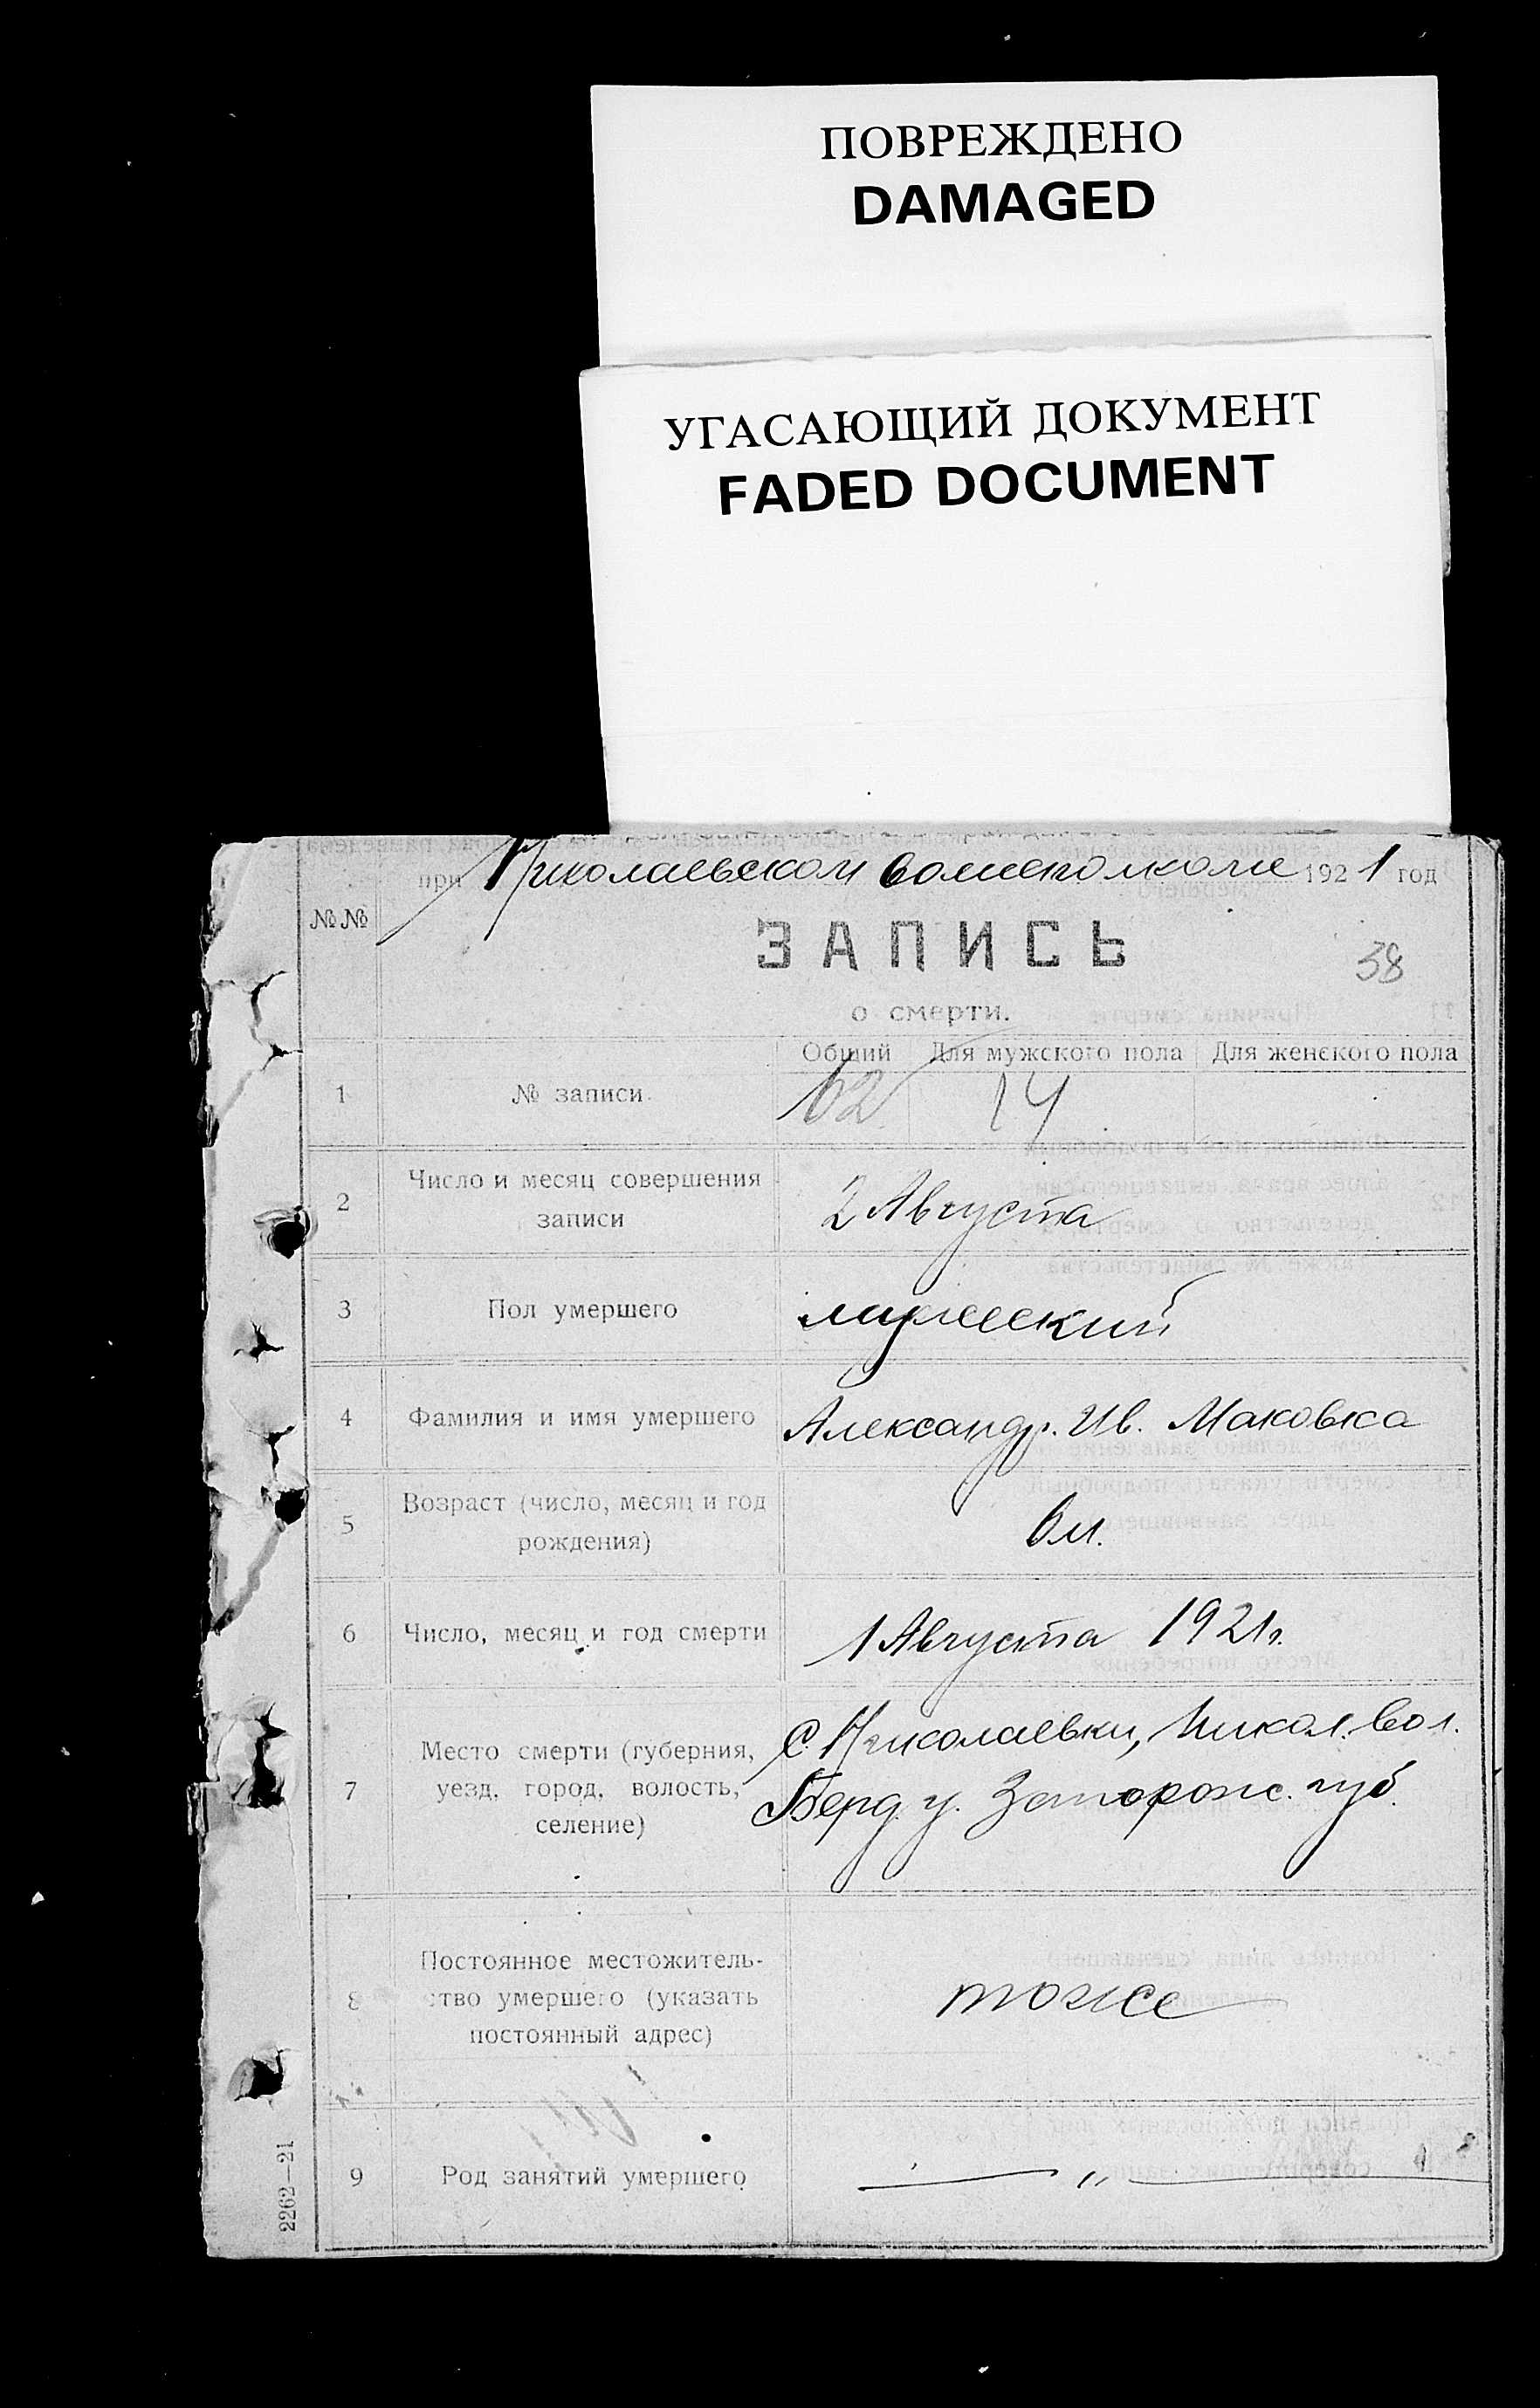 ПОВРЕЖДЕНО
DAMAGED
УГАСАЮЩИЙ ДОКУМЕНТ
FADED DOCUMENT
при Николаевском волисполкоме 1921 год
№№
ЗАПИСЬ
38
о смерти.
Общий Для мужского пола Для женского пола
1 № записи 62 14
2 Число и месяц совершения записи 2 Августа
3 Пол умершего мужеский
4 Фамилия и имя умершего Александр. Ив. Маковка
5 Возраст (число, месяц и год рождения) 6 м.
6 Число, месяц и год смерти 1 Августа 1921 г.
7 Место смерти (губерния, уезд, город, волость, селение) С. Николаевки, Никол. вол.
Берд. у. Запорож. губ.
8 Постоянное местожитель-
ство умершего (указать
постоянный адрес) тоже
9 Род занятий умершего — „ —
2262—21